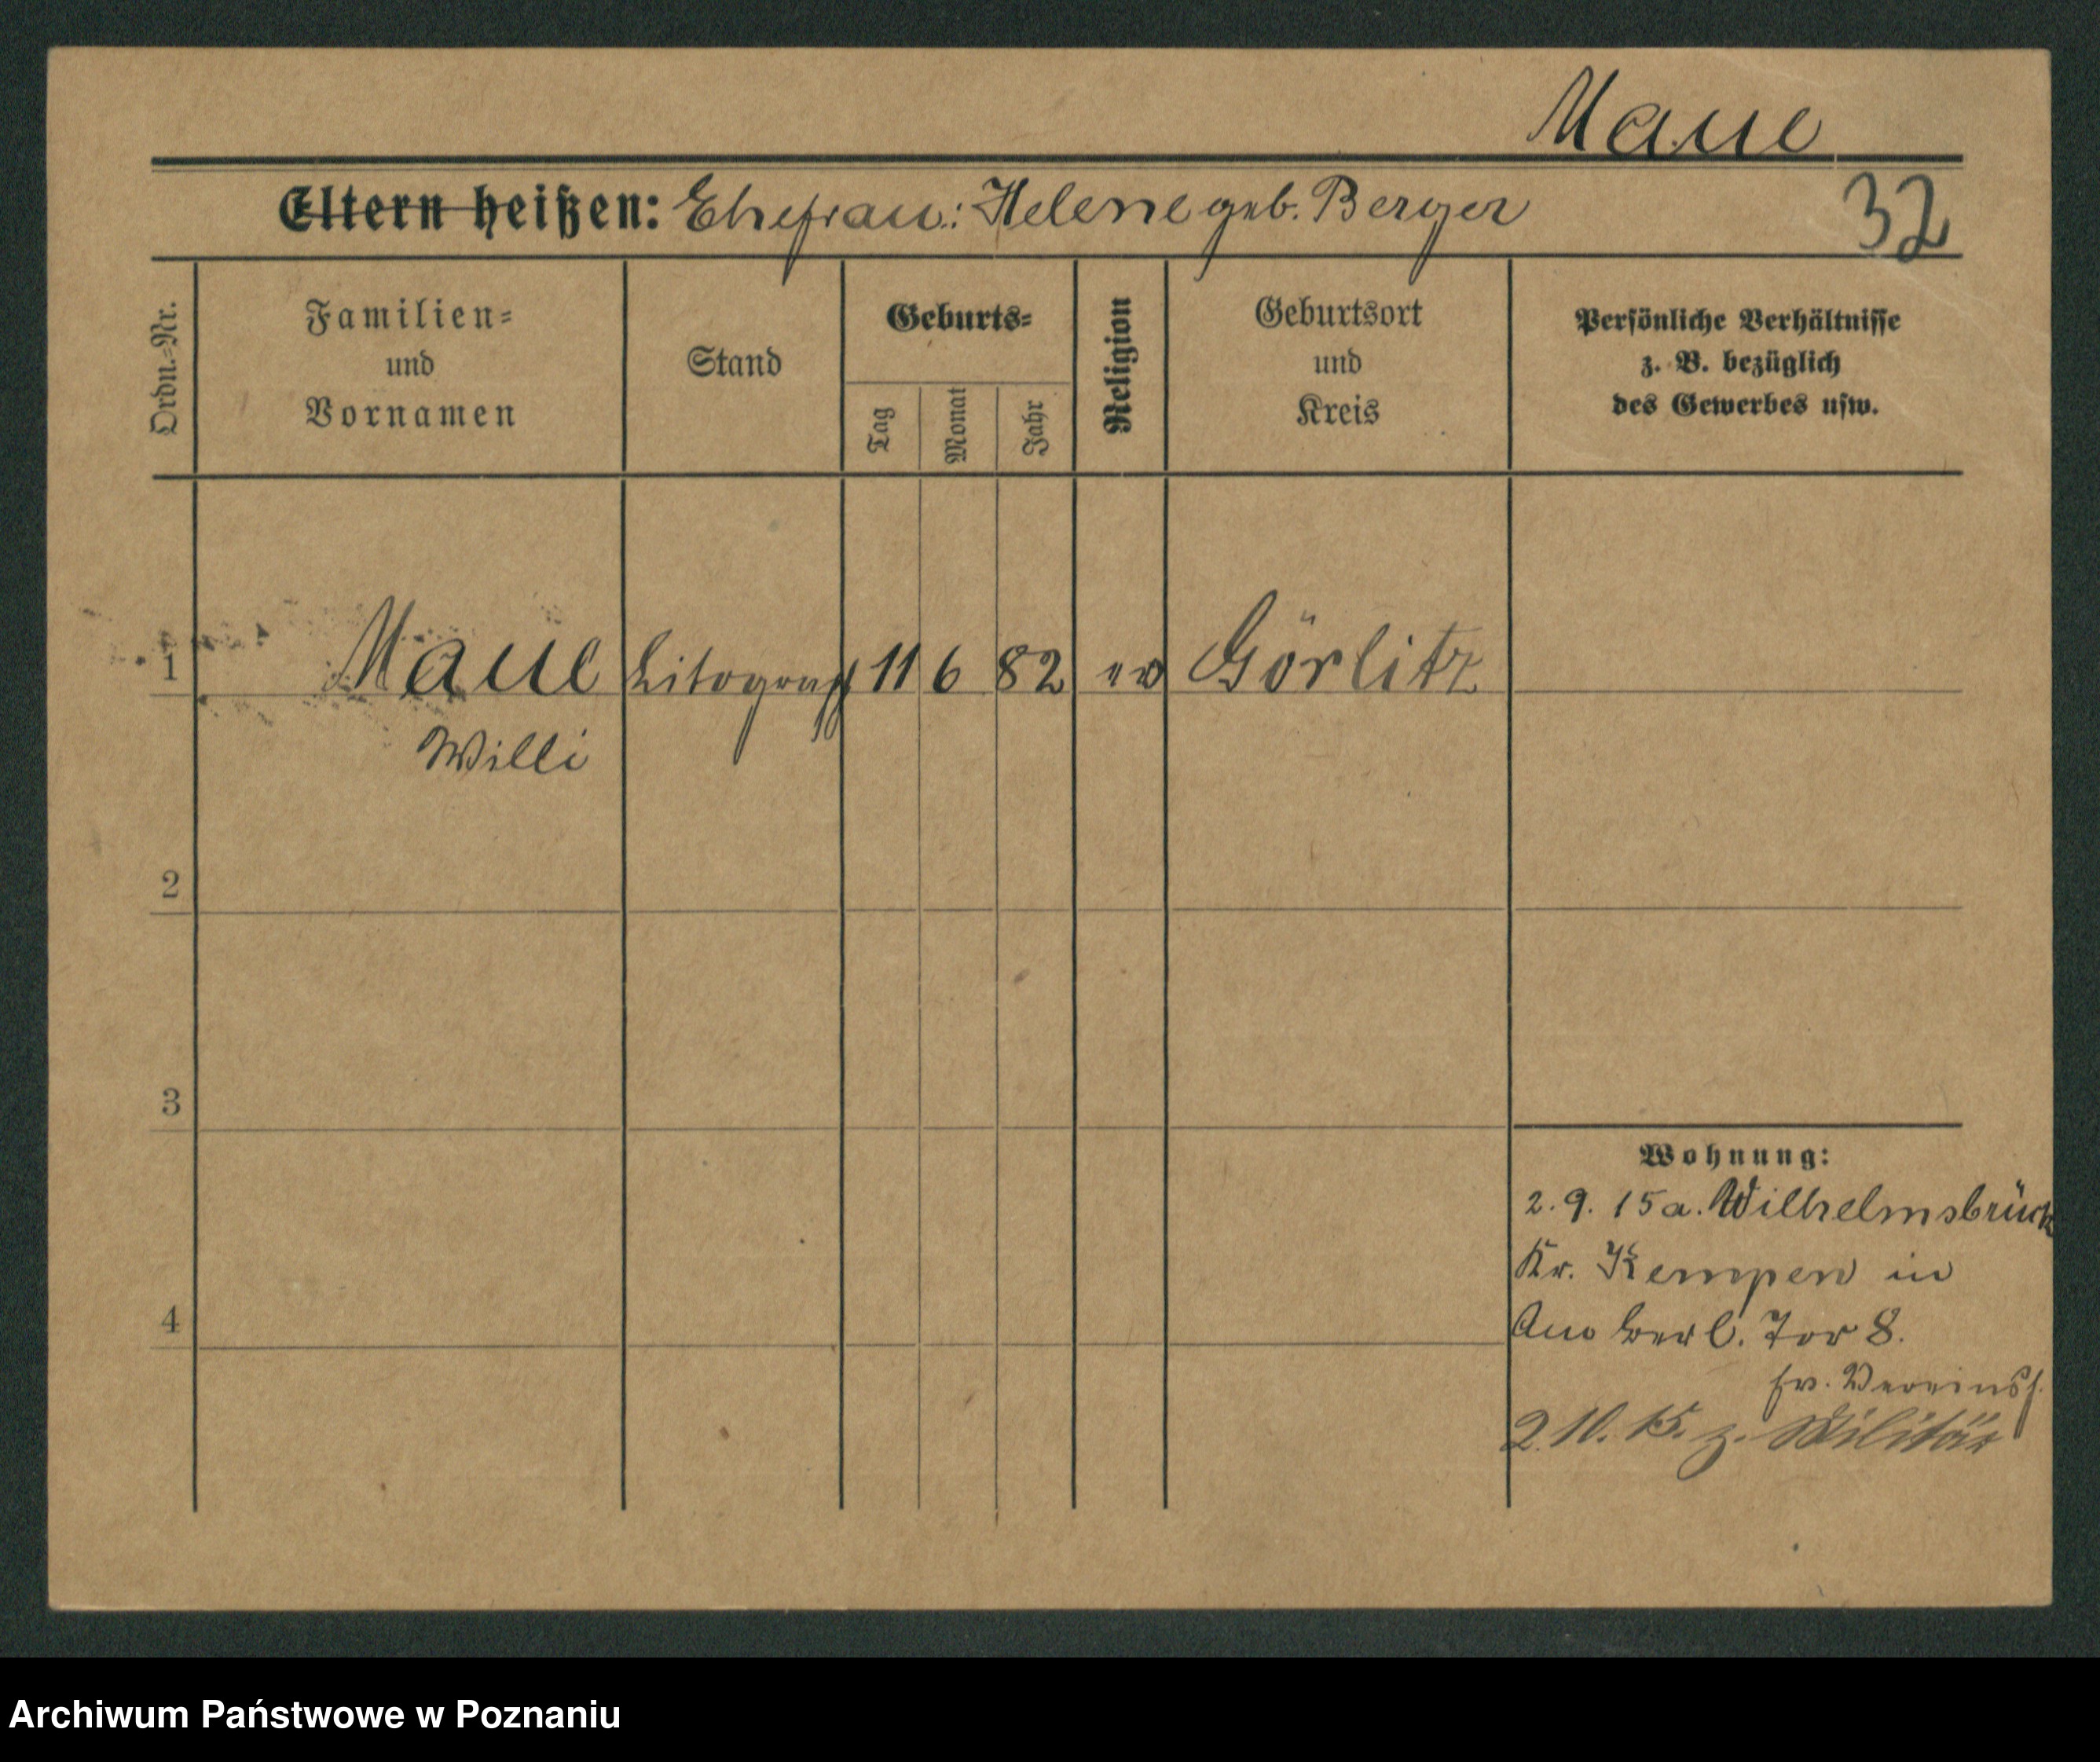 Maue
Eltern heißen: Ehefrau: Helene geb. Berger
32
Ordn.=Nr.
Familien=
und
Vornamen
Stand
Geburts=
Tag
Monat
Jahr
Religion
Geburtsort
und
Kreis
Persönliche Verhältnisse
z. B. bezüglich
des Gewerbes usw.
1 Maue Litograph 11 6 82 ev Görlitz
Willi
2
3
4
Wohnung:
2. 9. 15 a. Wilhelmsbrück
Kr. Kempen in
Am Berl. Tor 8.
2. 10. 15. z. Militär
Archiwum Państwowe w Poznaniu